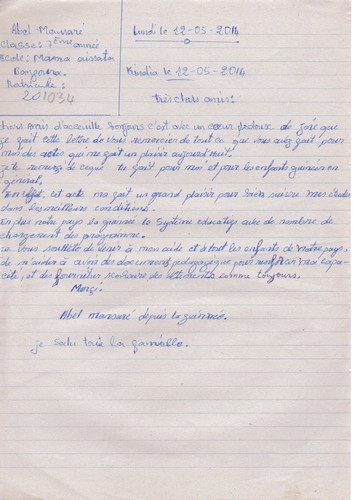 Abel Mansaré
Classe: 7ème année
Ecole: Mama aissata
Bangoura.
Matricule:
201034
Lundi le 12-05-2014
Kindia le 12-05-2014
Très chers amis:
chers Amis d'accueille bonjours c'est avec un cœur de joie que
je fait cette lettre de vous remercier de tout ce que vous avez fait pour
moi des actes qui me fait un plaisir aujourd'huit.
je te remerci de ceque tu fait pour moi et pour les enfants guinéens en
général,
En effet, cet acte ma fait un grand plaisir pour bien suivre mes études
dans les meilleurs conditions.
En plus notre pays la guinnée le système educatif avec de nombre de
changement des programme.
je vous souhaite de venir à mon aide et à tout les enfants de notre pays.
de m'aider à avoir des documents pedagogeque pour renforcer ma capa-
cité, et des fournitures scolaire des vêtements comme toujours.
Merçi.
Abel mansaré depuis la guinnée.
je salu toute la famille.